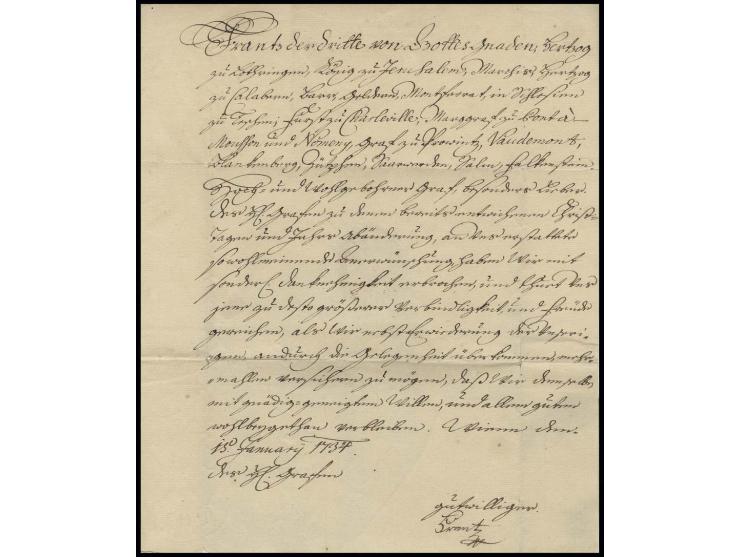 Frantz der Dritte von Gottes Gnaden, Hertzog
zu Lothringen, König zu Jerusalem, Marchis, Hertzog
zu Calabern, Barr, Geldern, Montferrat, in Schlesien
zu Teschen, Fürst zu Charleville, Marggraf zu Pont à
Mousson und Nomeny, Graf zu Provintz, Vaudemont,
Blankenberg, Zütphen, Saarwerden, Salm, Falkenstein.
Hoch- und Wohlgebohrner Graf, besonders Lieber.
Des H. Grafen zu denen bereits entwichenen Christ-
Tagen und Jahrs Abänderung, an Uns erstattete
sowohlmeinende Anwünschung, haben Wir mit
sonder. Danknehmigkeit erbrochen, und thuet Uns
jene zu desto größerer Verbindlichkeit, und Freude
gereichen, als Wir nebst Erwiederung der Unsri-
gen, andurch die Gelegenheit überkommen, mehr-
mahlen versichern zu mögen, daß Wir demselben
mit gnädig-geneigtem Willen, und allem guten
wohlbeygethan verbleiben. Wienn den
15. January 1734.
Des H. Grafen
gutwilliger
Frantz